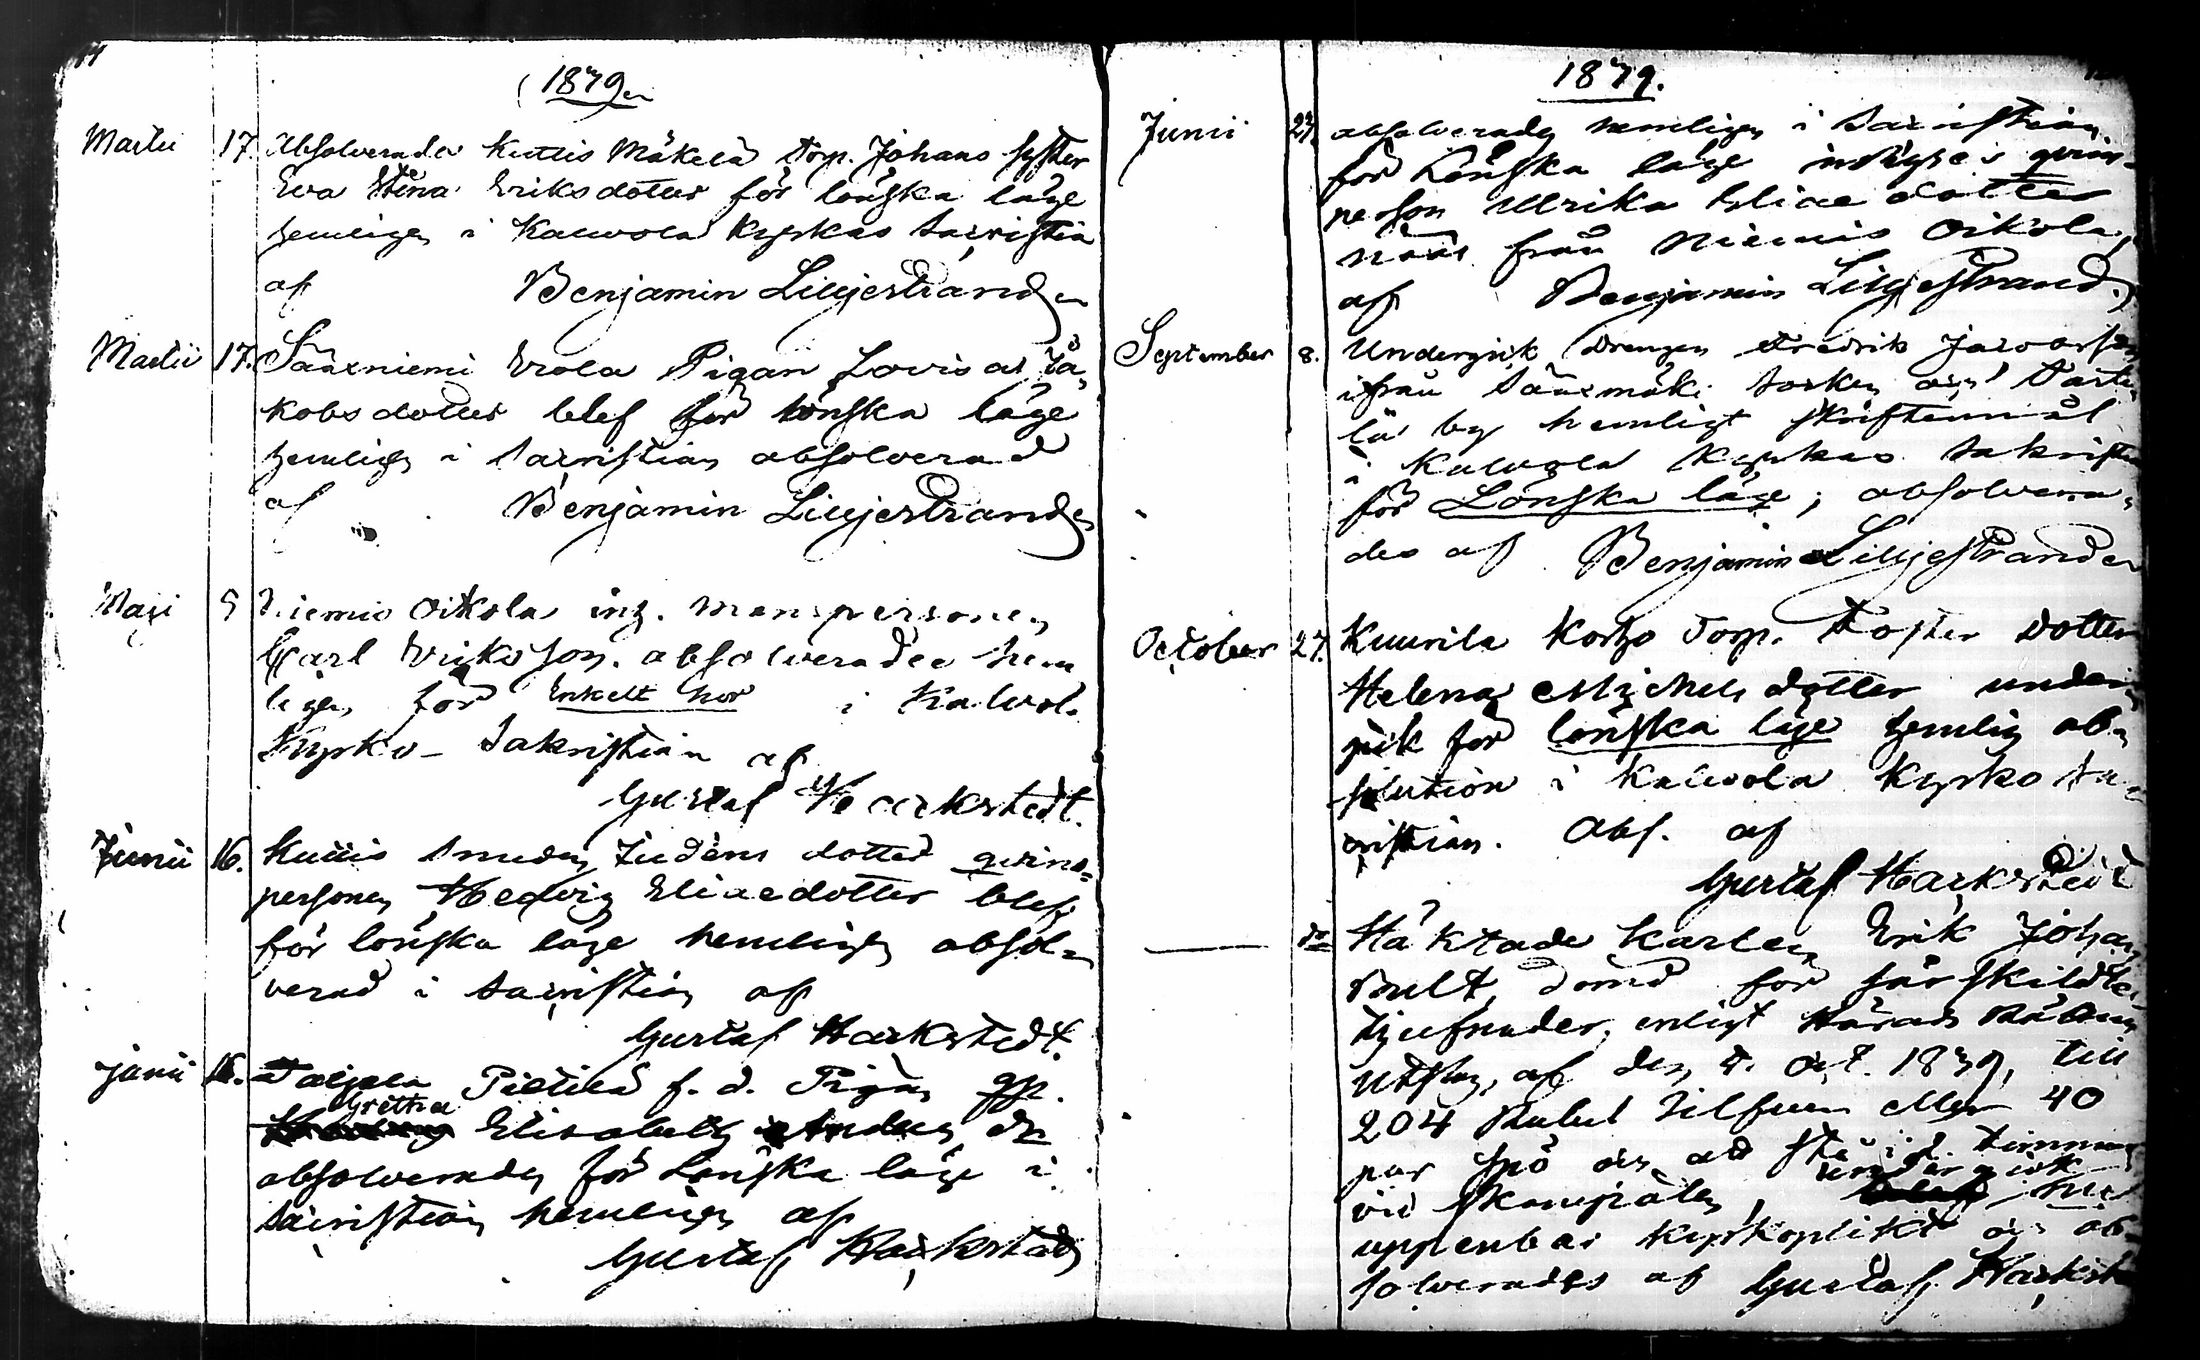 1879
Martii 17. Absolverades Kutis Mäkelä Torp. Johans syster
Eva Stina Eriksdotter för lönska läge
hemligen i Kalvola Kyrkas Sacristia
af Benjamin Lilljestrand
Martii 17. Sääxniemi Pigan Lovisa Ja,
kobsdotter blef för lönska läge
hemligen i Sacristian absolverad
af Benjamin Lilljestrand
Maji 5 Niemis Oikola inh. mans personen
Carl Eriksson. absolverades hem
ligen för Enkelt hor i Kalvol.
Kyrko- Sakristian af
Gustaf Harkstedt.
Junii 16. Smeden dotter qvins-
personen Hedvig Eliaedotter blef
för lönska läge hemligen absol-
verad i Sacristian af
Gustaf Harkstedt.
Junii 16. Pietilä f. d. Pigan
Gretha
Elisabeth
absolverades för Lönska läge i
Sacristian hemligen af
Gustaf Harkstedt
1879.
Junii 27. absolverades hemligen i Sacristian
för Lönska läge qvins-
person Ulrika Eliae dotter
från Niemis Oikola,
af Benjamin Lilljestrand.
September 8. Undergick Drengen Fredrik
ifrån Sääxmäki Socken och
by hemligt skriftermål
i Kalvola Kyrkas Sakristia
för Lönska läge; absolvera-
des af Benjamin Lilljestrand
October 27. Kuurila Torp. Foster dotter
Helena Michels dotter under
gick för lönska läge hemlig ab-
solution i Kalvola Kyrko Sa-
cristian. Abs. af
Gustaf Harkstedt
do Häktade Karlen Erik Johan
dömd för särskildte
tjufnader, enligt Härads Rättens
Utslag, af den Oct. 1839, till
204 Rubel Silfver eller 40
par spö och att stå i d. timma
vid skampålen, undergick
uppenbar Kyrkoplikt och ab-
solverades af Gustaf Harkst